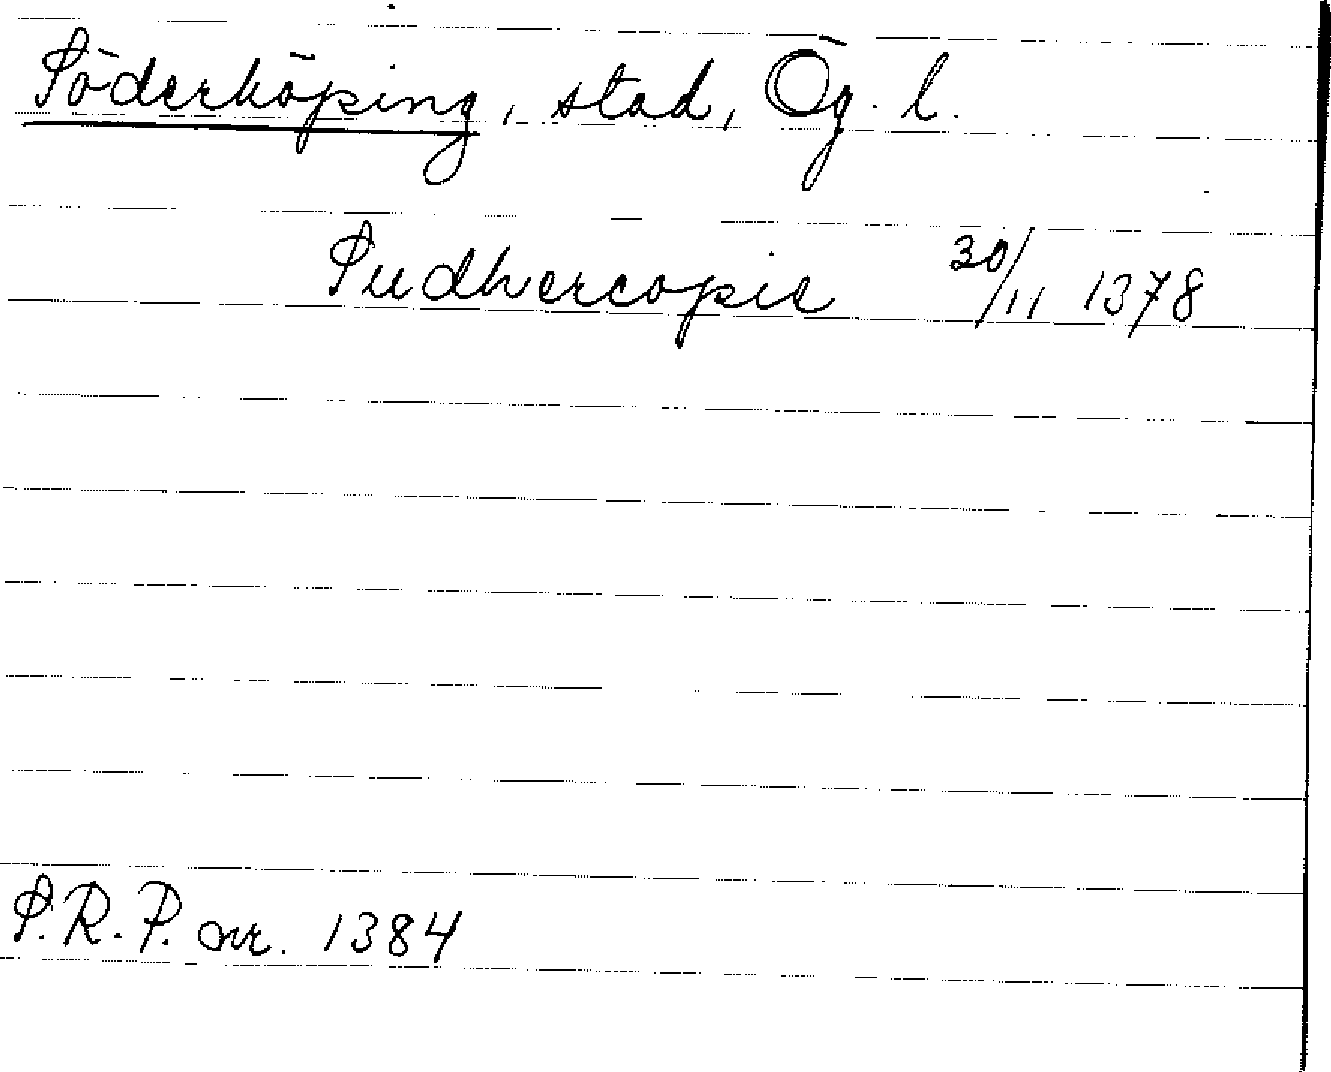 Söderköping, stad, Ög. l.
Sudhercopie 30/11 1378
S.R.P. nr. 1384